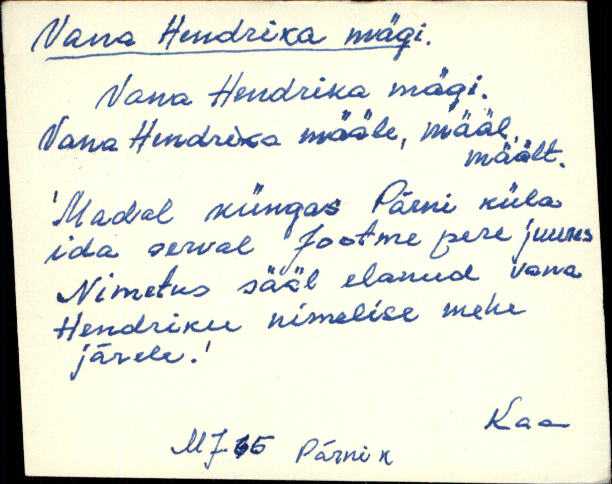 Vana Hendrika mägi.
Vana Hendrika mägi.
Vana Hendrika määle, määl,
mäält.
'Madal küngas Pärni küla
ida serval Jootme pere juures
Nimetus sääl elanud vana
Hendriku nimelise mehe
järele.'
Kaa
MJ 65 Pärni k